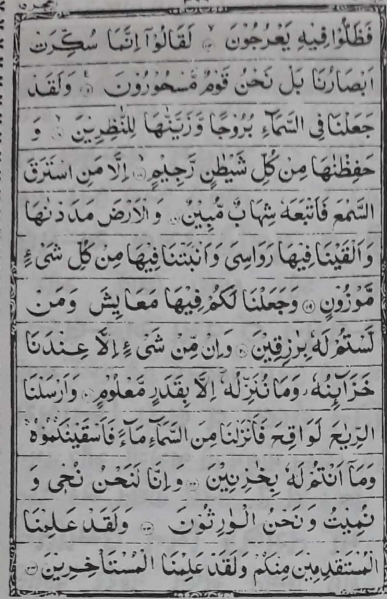 فَظَلُّوْا فِيْهِ يَعْرُجُوْنَ ۙ لَقَالُوْٓا اِنَّمَا سُكِّرَتْ
اَبْصَارُنَا بَلْ نَحْنُ قَوْمٌ مَّسْحُوْرُوْنَ ۠ وَلَقَدْ
جَعَلْنَا فِى السَّمَآءِ بُرُوْجًا وَّزَيَّنّٰهَا لِلنّٰظِرِيْنَ ۙ وَ
حَفِظْنٰهَا مِنْ كُلِّ شَيْطٰنٍ رَّجِيْمٍ ۙ اِلَّا مَنِ اسْتَرَقَ
السَّمْعَ فَاَتْبَعَهٗ شِهَابٌ مُّبِيْنٌ ۝ وَالْاَرْضَ مَدَدْنٰهَا
وَاَلْقَيْنَا فِيْهَا رَوَاسِىَ وَاَنْۢبَتْنَا فِيْهَا مِنْ كُلِّ شَىْءٍ
مَّوْزُوْنٍ ۝ وَجَعَلْنَا لَكُمْ فِيْهَا مَعَايِشَ وَمَنْ
لَّسْتُمْ لَهٗ بِرٰزِقِيْنَ ۝ وَاِنْ مِّنْ شَىْءٍ اِلَّا عِنْدَنَا
خَزَآئِنُهٗ وَمَا نُنَزِّلُهٗٓ اِلَّا بِقَدَرٍ مَّعْلُوْمٍ ۝ وَاَرْسَلْنَا
الرِّيٰحَ لَوَاقِحَ فَاَنْزَلْنَا مِنَ السَّمَآءِ مَآءً فَاَسْقَيْنٰكُمُوْهُ ۚ
وَمَآ اَنْتُمْ لَهٗ بِخٰزِنِيْنَ ۝ وَاِنَّا لَنَحْنُ نُحْىٖ وَ
نُمِيْتُ وَنَحْنُ الْوٰرِثُوْنَ ۝ وَلَقَدْ عَلِمْنَا
الْمُسْتَقْدِمِيْنَ مِنْكُمْ وَلَقَدْ عَلِمْنَا الْمُسْتَاْخِرِيْنَ ۝